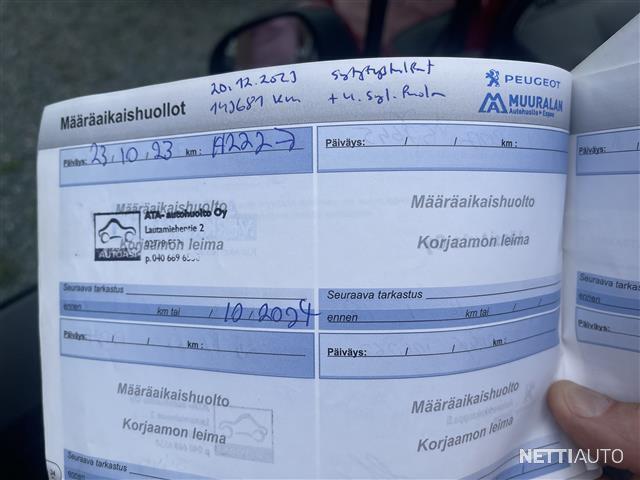 20.12.2023
143681 km
PEUGEOT
MUURALAN
Autohuolto Espoo
Määräaikaishuollot
Päiväys: 23.10.23 km:
Päiväys: / / km:
Päiväys:
Määräaikaishuolto
Korjaamon leima
ATA- autohuolto Oy
Lautamiehentie 2
p.040 669
AUTOASI
Määräaikaishuolto
Korjaamon leima
Seuraava tarkastus
ennen / km tai 10.2024
Seuraava tarkastus
ennen / km tai / /
Seuraava
ennen
Päiväys: / / km:
Päiväys: / / km:
Päiväys:
Määräaikaishuolto
Korjaamon leima
Määräaikaishuolto
Korjaamon leima
Seuraava tarkastus
ennen
Seuraava tarkastus
NETTIAUTO